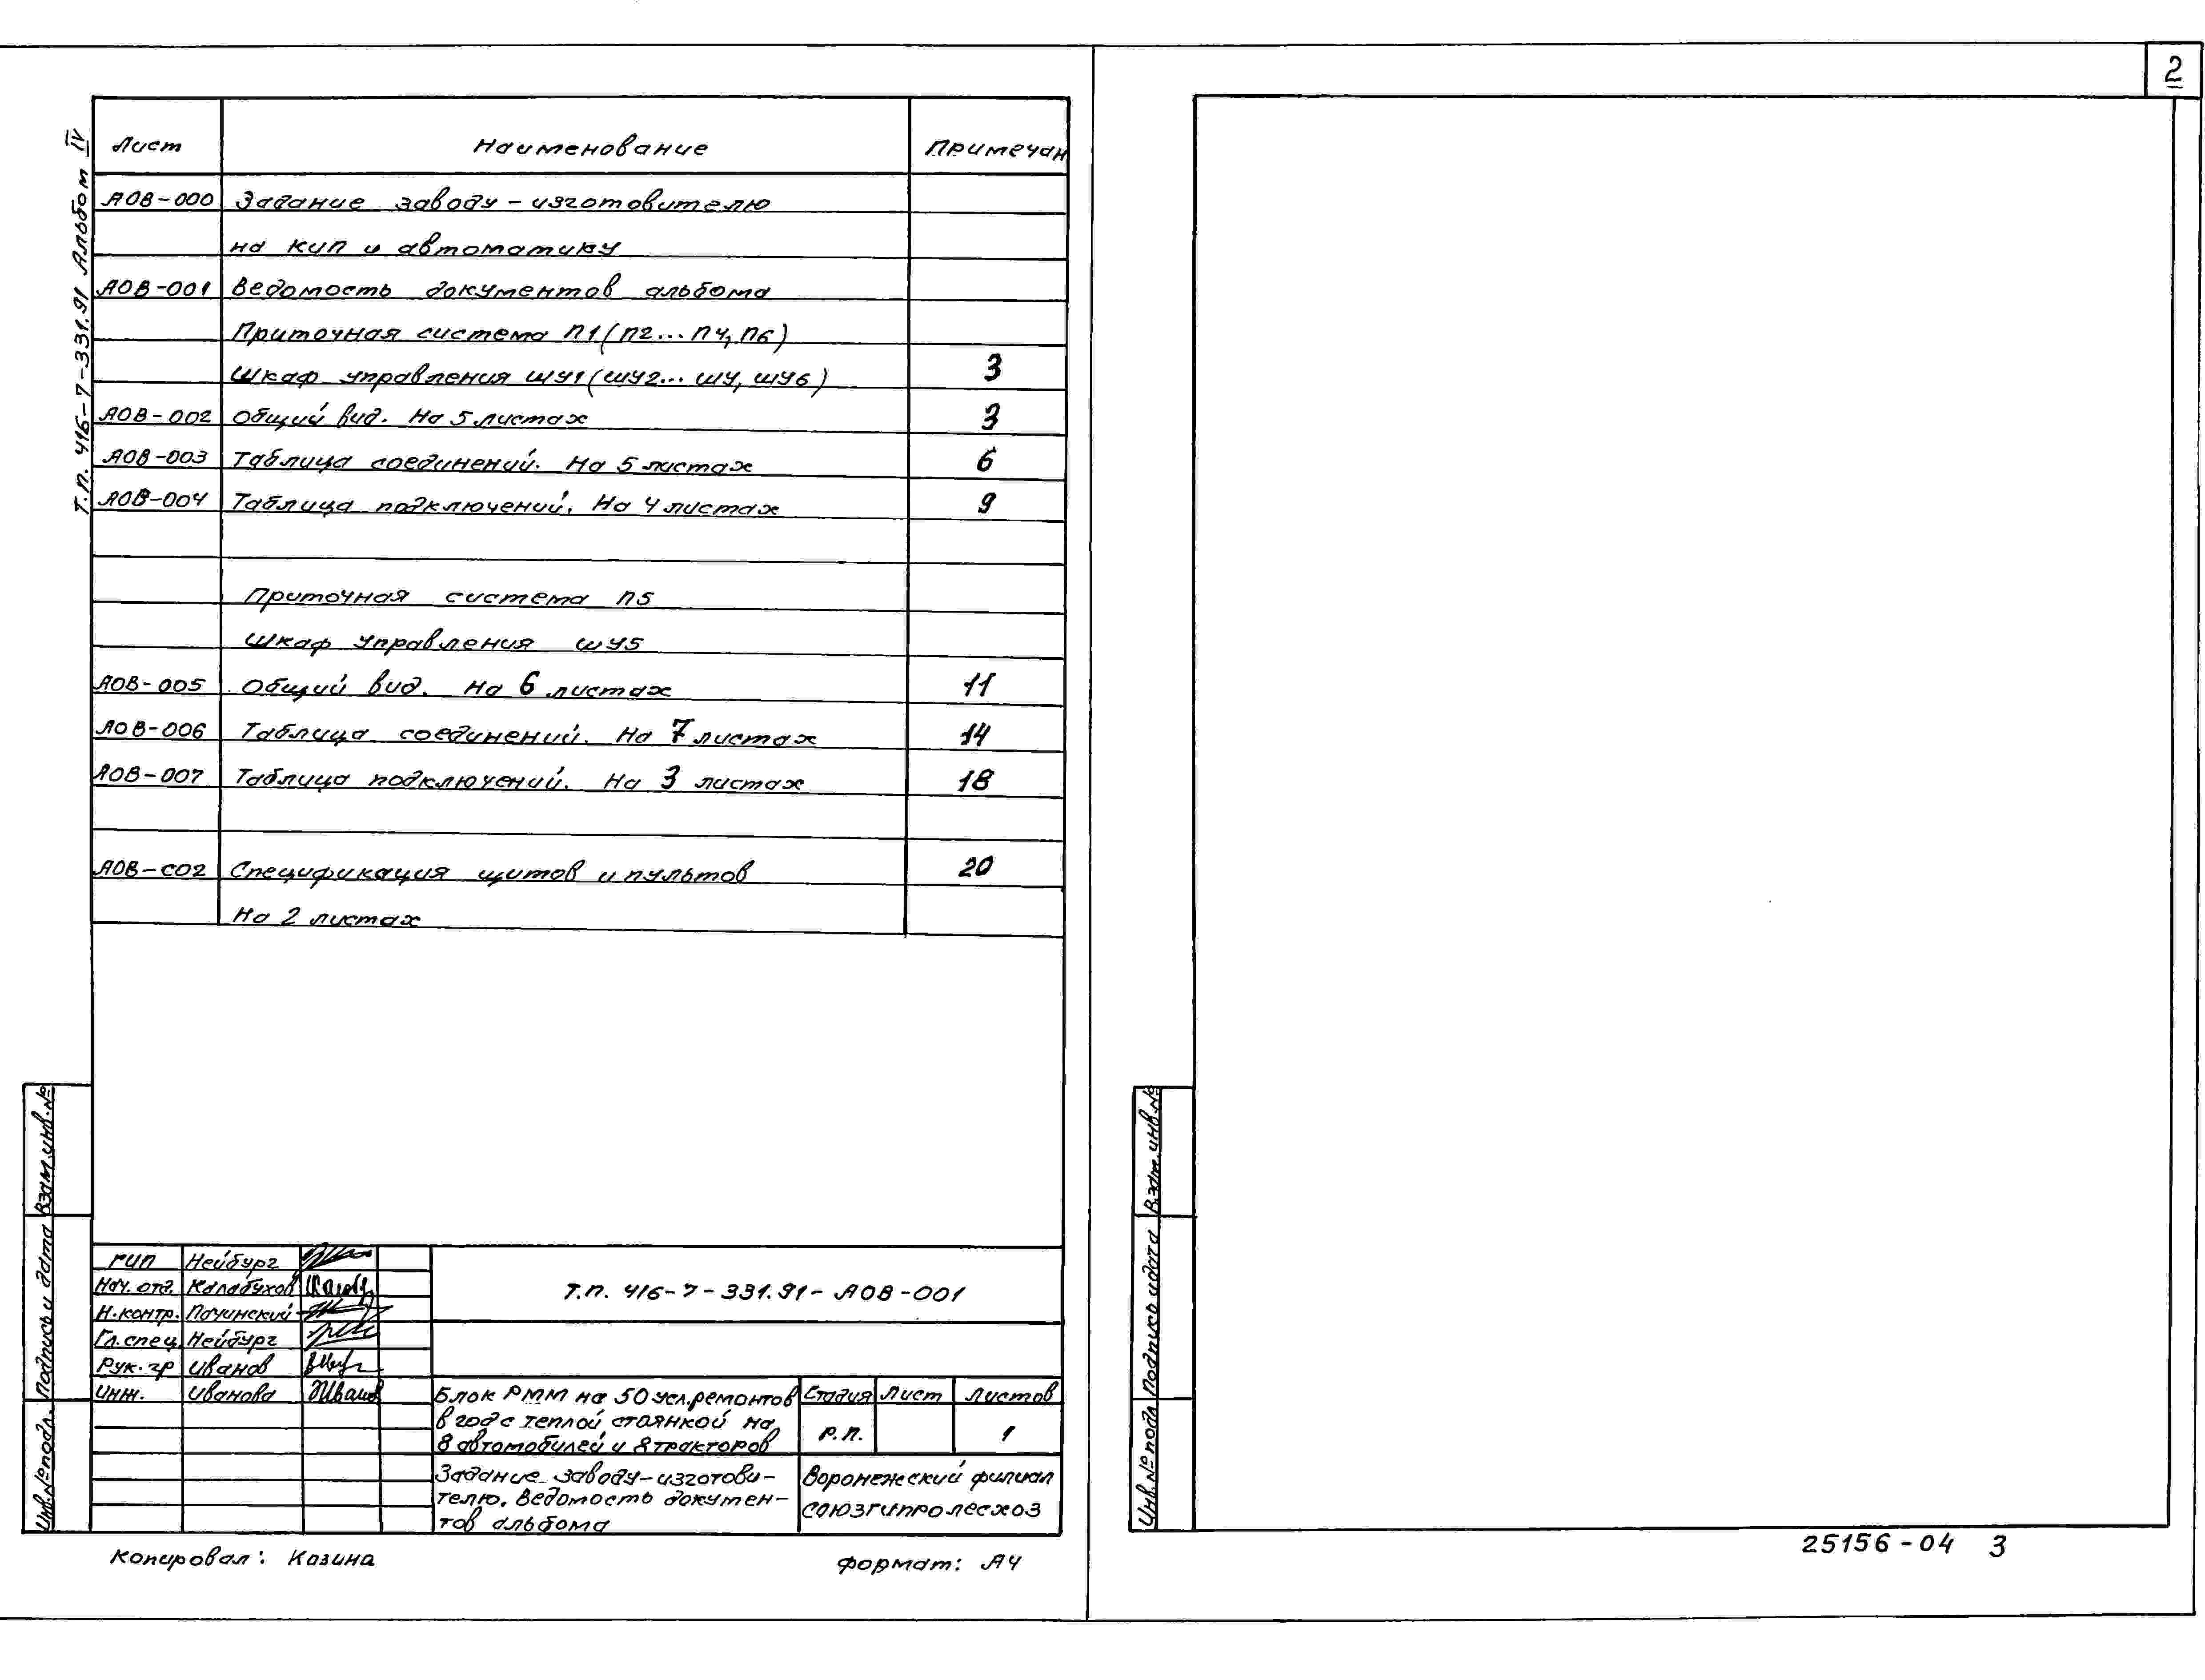 2
Т.п. 416-7-331.91 Альбом IV
Лист Наименование Примечан
АОВ-000 Задание заводу-изготовителю
на КИП и автоматику
АОВ-001 Ведомость документов альбома
Приточная система П1 (П2...П4, П6)
Шкаф управления ШУ1 (ШУ2...ШУ, ШУ6) 3
АОВ-002 Общий вид. На 5 листах 3
АОВ-003 Таблица соединений. На 5 листах 6
АОВ-004 Таблица подключений. На 4 листах 9
Приточная система П5
Шкаф управления ШУ5
АОВ-005 Общий вид. На 6 листах 11
АОВ-006 Таблица соединений. На 7 листах 14
АОВ-007 Таблица подключений. На 3 листах 18
АОВ-С02 Спецификация щитов и пультов 20
На 2 листах
Взам.инв.№
Подпись и дата
Инв.№подл.
ГИП Нейбург
Нач. отд. Калабухов
Н.контр. Пачинский
Гл.спец. Нейбург
Рук.гр Иванов
Инж. Иванова
Т.п. 416-7-331.91-АОВ-001
Блок РММ на 50 усл.ремонтов
в год с теплой стоянкой на
8 автомобилей и 8 тракторов
Стадия Лист Листов
Р.П. 1
Задание заводу-изготови-
телю. Ведомость докумен-
тов альбома
Воронежский филиал
Союзгипролесхоз
Копировал: Казина
Формат: А4
Взам.инв.№
Подпись и дата
Инв.№подл
25156-04 3